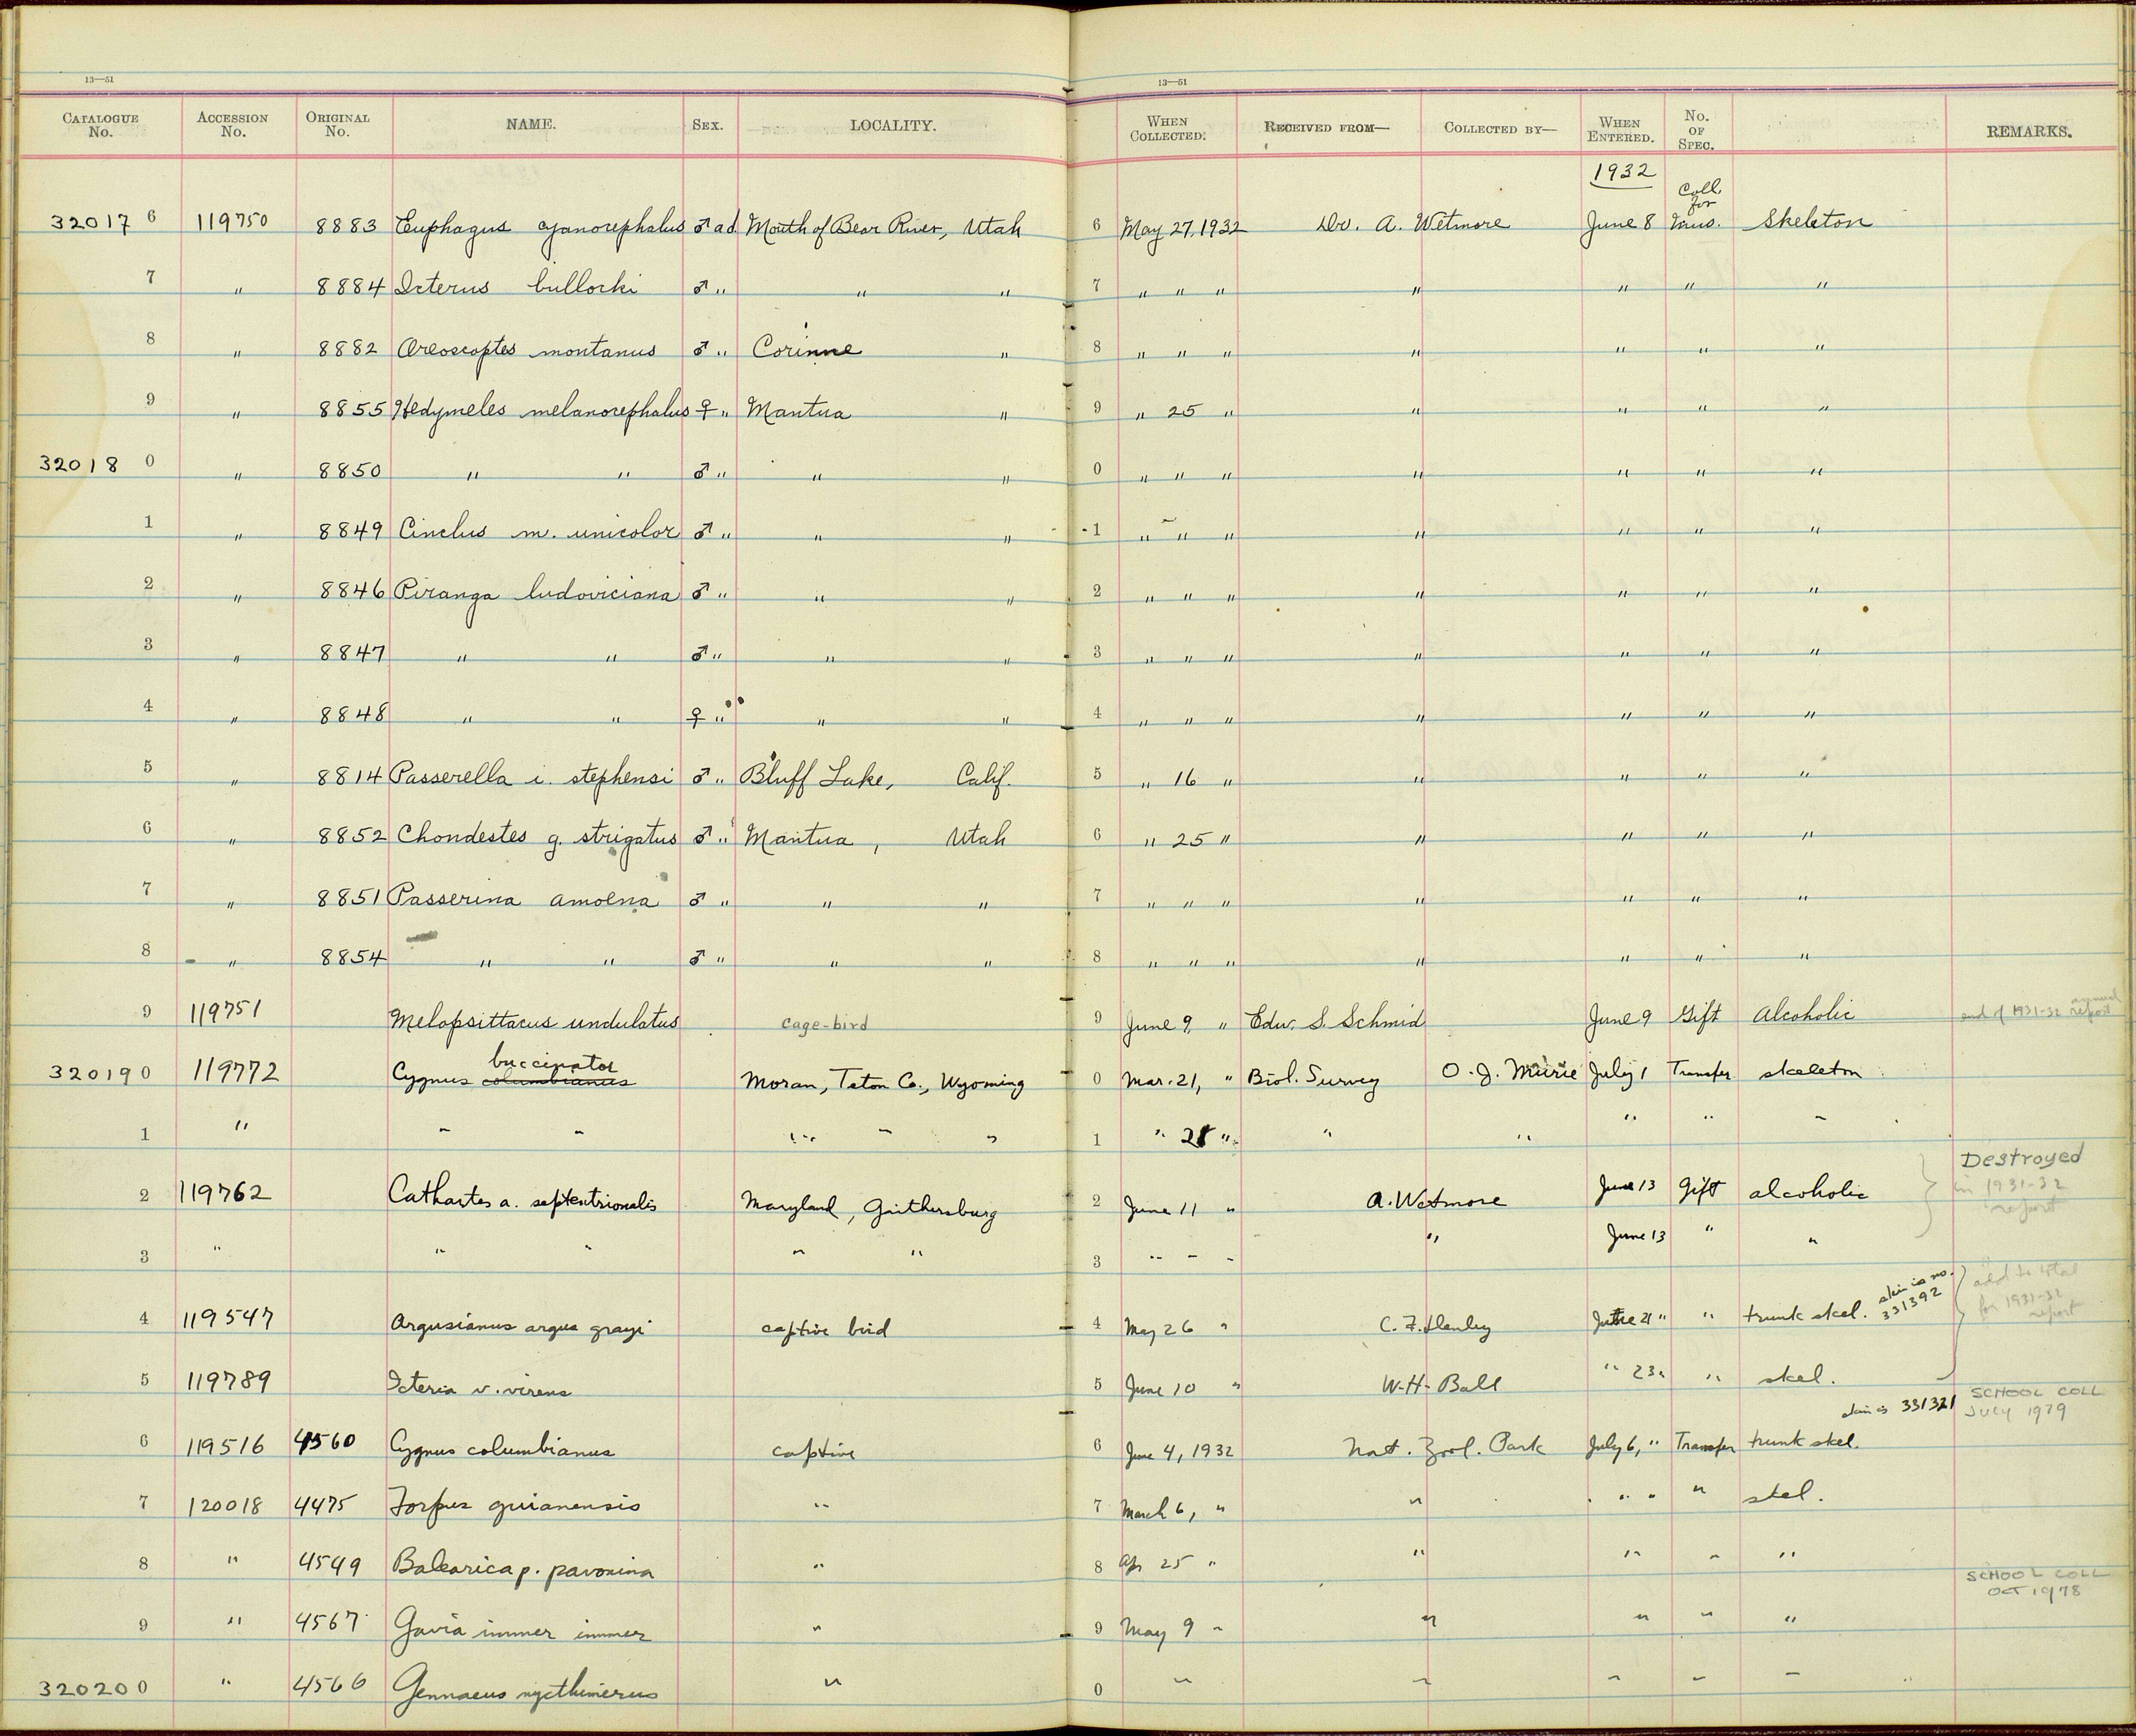 13—51 13—51
CATALOGUE No. ACCESSION No. ORIGINAL No. NAME. SEX. LOCALITY. WHEN COLLECTED. RECEIVED FROM— COLLECTED BY— WHEN ENTERED. No. OF SPEC. REMARKS.
1932
32017 6 119750 8883 Euphagus cyanocephalus ♂ ad. Mouth of Bear River, Utah 6 May 27, 1932 Dr. A. Wetmore June 8 Coll. for Mus. Skeleton
7 " 8884 Icterus bullocki ♂ " " " 7 " " " " " " "
8 " 8882 Oreoscoptes montanus ♂ " Corinne " 8 " " " " " " "
9 " 8855 Hedymeles melanocephalus ♀ " Mantua " 9 " 25 " " " " "
32018 0 " 8850 " " ♂ " " " 0 " " " " " " "
1 " 8849 Cinclus m. unicolor ♂ " " " 1 " " " " " " "
2 " 8846 Piranga ludoviciana ♂ " " " 2 " " " " " " "
3 " 8847 " " ♂ " " " 3 " " " " " " "
4 " 8848 " " ♀ " " " 4 " " " " " " "
5 " 8814 Passerella i. stephensi ♂ " Bluff Lake, Calif. 5 " 16 " " " " "
6 " 8852 Chondestes g. strigatus ♂ " Mantua, Utah 6 " 25 " " " " "
7 " 8851 Passerina amoena ♂ " " " 7 " " " " " " "
8 " 8854 " " ♂ " " " 8 " " " " " " "
9 119751 Melopsittacus undulatus cage-bird 9 June 9, " Edw. S. Schmid June 9 Gift Alcoholic end of 1931-32 annual report
32019 0 119772 Cygnus columbianus buccinator Moran, Teton Co., Wyoming 0 Mar. 21, " Biol. Survey O. J. Murie July 1 Transfer skeleton
1 " " " " " " 1 " 28 " " " " " "
2 119762 Cathartes a. septentrionalis Maryland, Gaithersburg 2 June 11 " A. Wetmore June 13 Gift alcoholic Destroyed in 1931-32 report
3 " " " " " 3 " " " " June 13 " "
4 119547 Argusianus argus grayi captive bird 4 May 26 " C. F. Henley June 21 " " trunk skel. skin is no. 331392 add to total for 1931-32 report
5 119789 Icteria v. virens 5 June 10 " W. H. Ball " 23 " " skel.
6 119516 4560 Cygnus columbianus captive 6 June 4, 1932 Nat. Zool. Park July 6, " Transfer trunk skel. skin is 331321 SCHOOL COLL JULY 1979
7 120018 4475 Forpus guianensis " 7 March 6, " " " " " skel.
8 " 4549 Balearica p. pavonina " 8 Apr 25 " " " " " SCHOOL COLL OCT 1978
9 " 4567 Gavia immer immer " 9 May 9 " " " " "
32020 0 " 4566 Gennaeus nycthemerus " 0 " " " " "